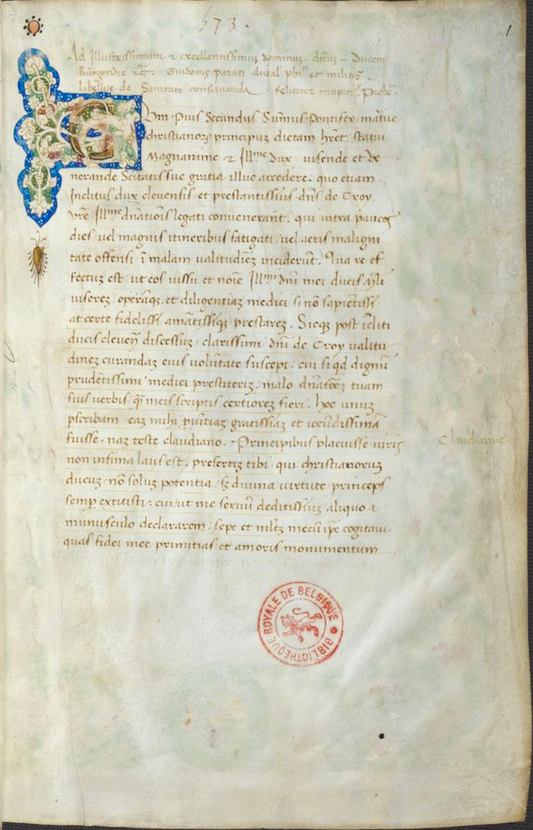 573.
1
Ad Illustrissimum & excellentissimum dominum. dnm. Ducem
Burgondie &c. Guidonis parati ducal phi et militis
libellus de Sanitate conservanda feliciter incipit. Prohe.
Cum Pius Secundus Sumus Pontifex mātue
christianorꝝ principuꝫ dietam hret. statui
Magnanime & Illme dux. visende et ve
nerande Sctitatis sue gratia illuc accedere. quo etiam
Inclitus dux clevensis et prestantissimus dns de Croy.
vre Illme dnatiois legati convenerant. qui intra paucos
dies vel magnis itineribus fatigati vel aeris maligni
tate offensi. ī malam valitudinēꝫ inciderūt. Qua re ef
fectuꝫ est. ut eos iussu et noīe Illmi dnī mei ducis mli
viserēꝫ. operāqꝫ. et diligentiaꝫ medici si nō sapiētissi
at certe fidelissi amātissiqꝫ prestareꝫ. Sicqꝫ post icliti
ducis cleveñ discessuꝫ. clarissimi dnī de Croy valitu
dineꝫ curandaꝫ eius volūtate suscepi. cui si qd dignū
prudētissimi medici prestiteriꝫ. malo dnatioēꝫ tuam
suis verbis. q̄ meis scriptis certiorēꝫ fieri. hoc unuꝫ
pscribam. eaꝫ mihi puītiaꝫ gratissiaꝫ et iocūdissimā
fuisse. naꝫ teste claudiano. Principibus placuisse viris
Claudianus
non infima laus est. presertiꝫ tibi. qui christianorum
ducuꝫ nō soluꝫ potentia. sꝫ divina virtute princeps
semp extitisti. cui ut me servū deditissiuꝫ aliquo
munusculo declararem. sepe et mltꝫ mecū ipe cogitavi
quas fidei mee primitias et amoris monumentum
BIBLIOTHÈQUE ROYALE DE BELGIQUE